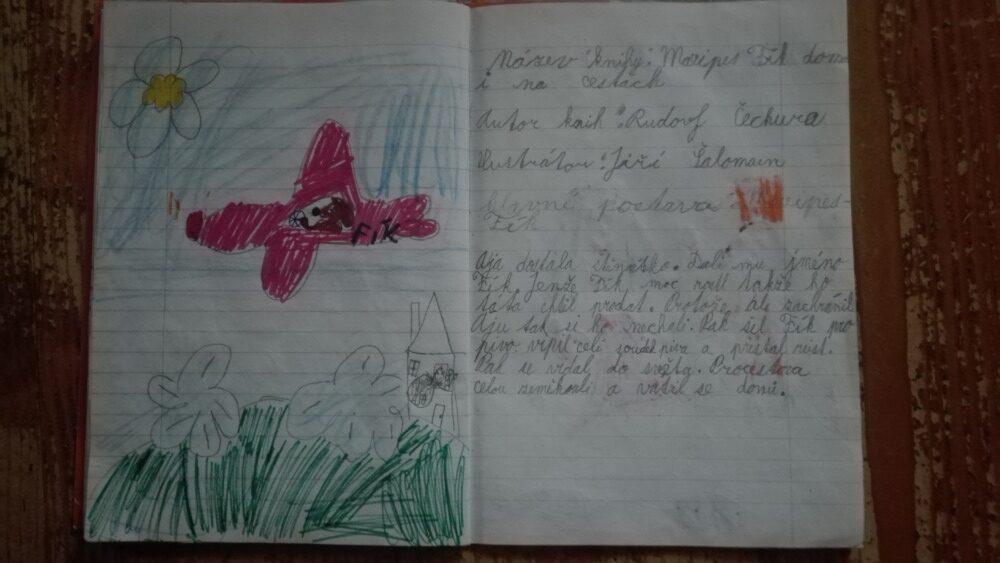 FÍK
Název knihy: Maxipes Fík doma
i na cestách
Autor knih: Rudolf Čechura
Ilustrátor: Jiří Šalomain
Hlavní postava: Maxipes-
Fík
Ája dostala štěnátko. Dali mu jméno
Fík. Jenže Fík moc rostl takže ho
táta chtěl prodat. Protože ale zachránil
Áju tak si ho nechali. Pak šel Fík pro
pivo. vipil celi soudek piva a přistal růst.
Pak se vidal do světa. Procestova
celou zemikouli a vrátil se domů.